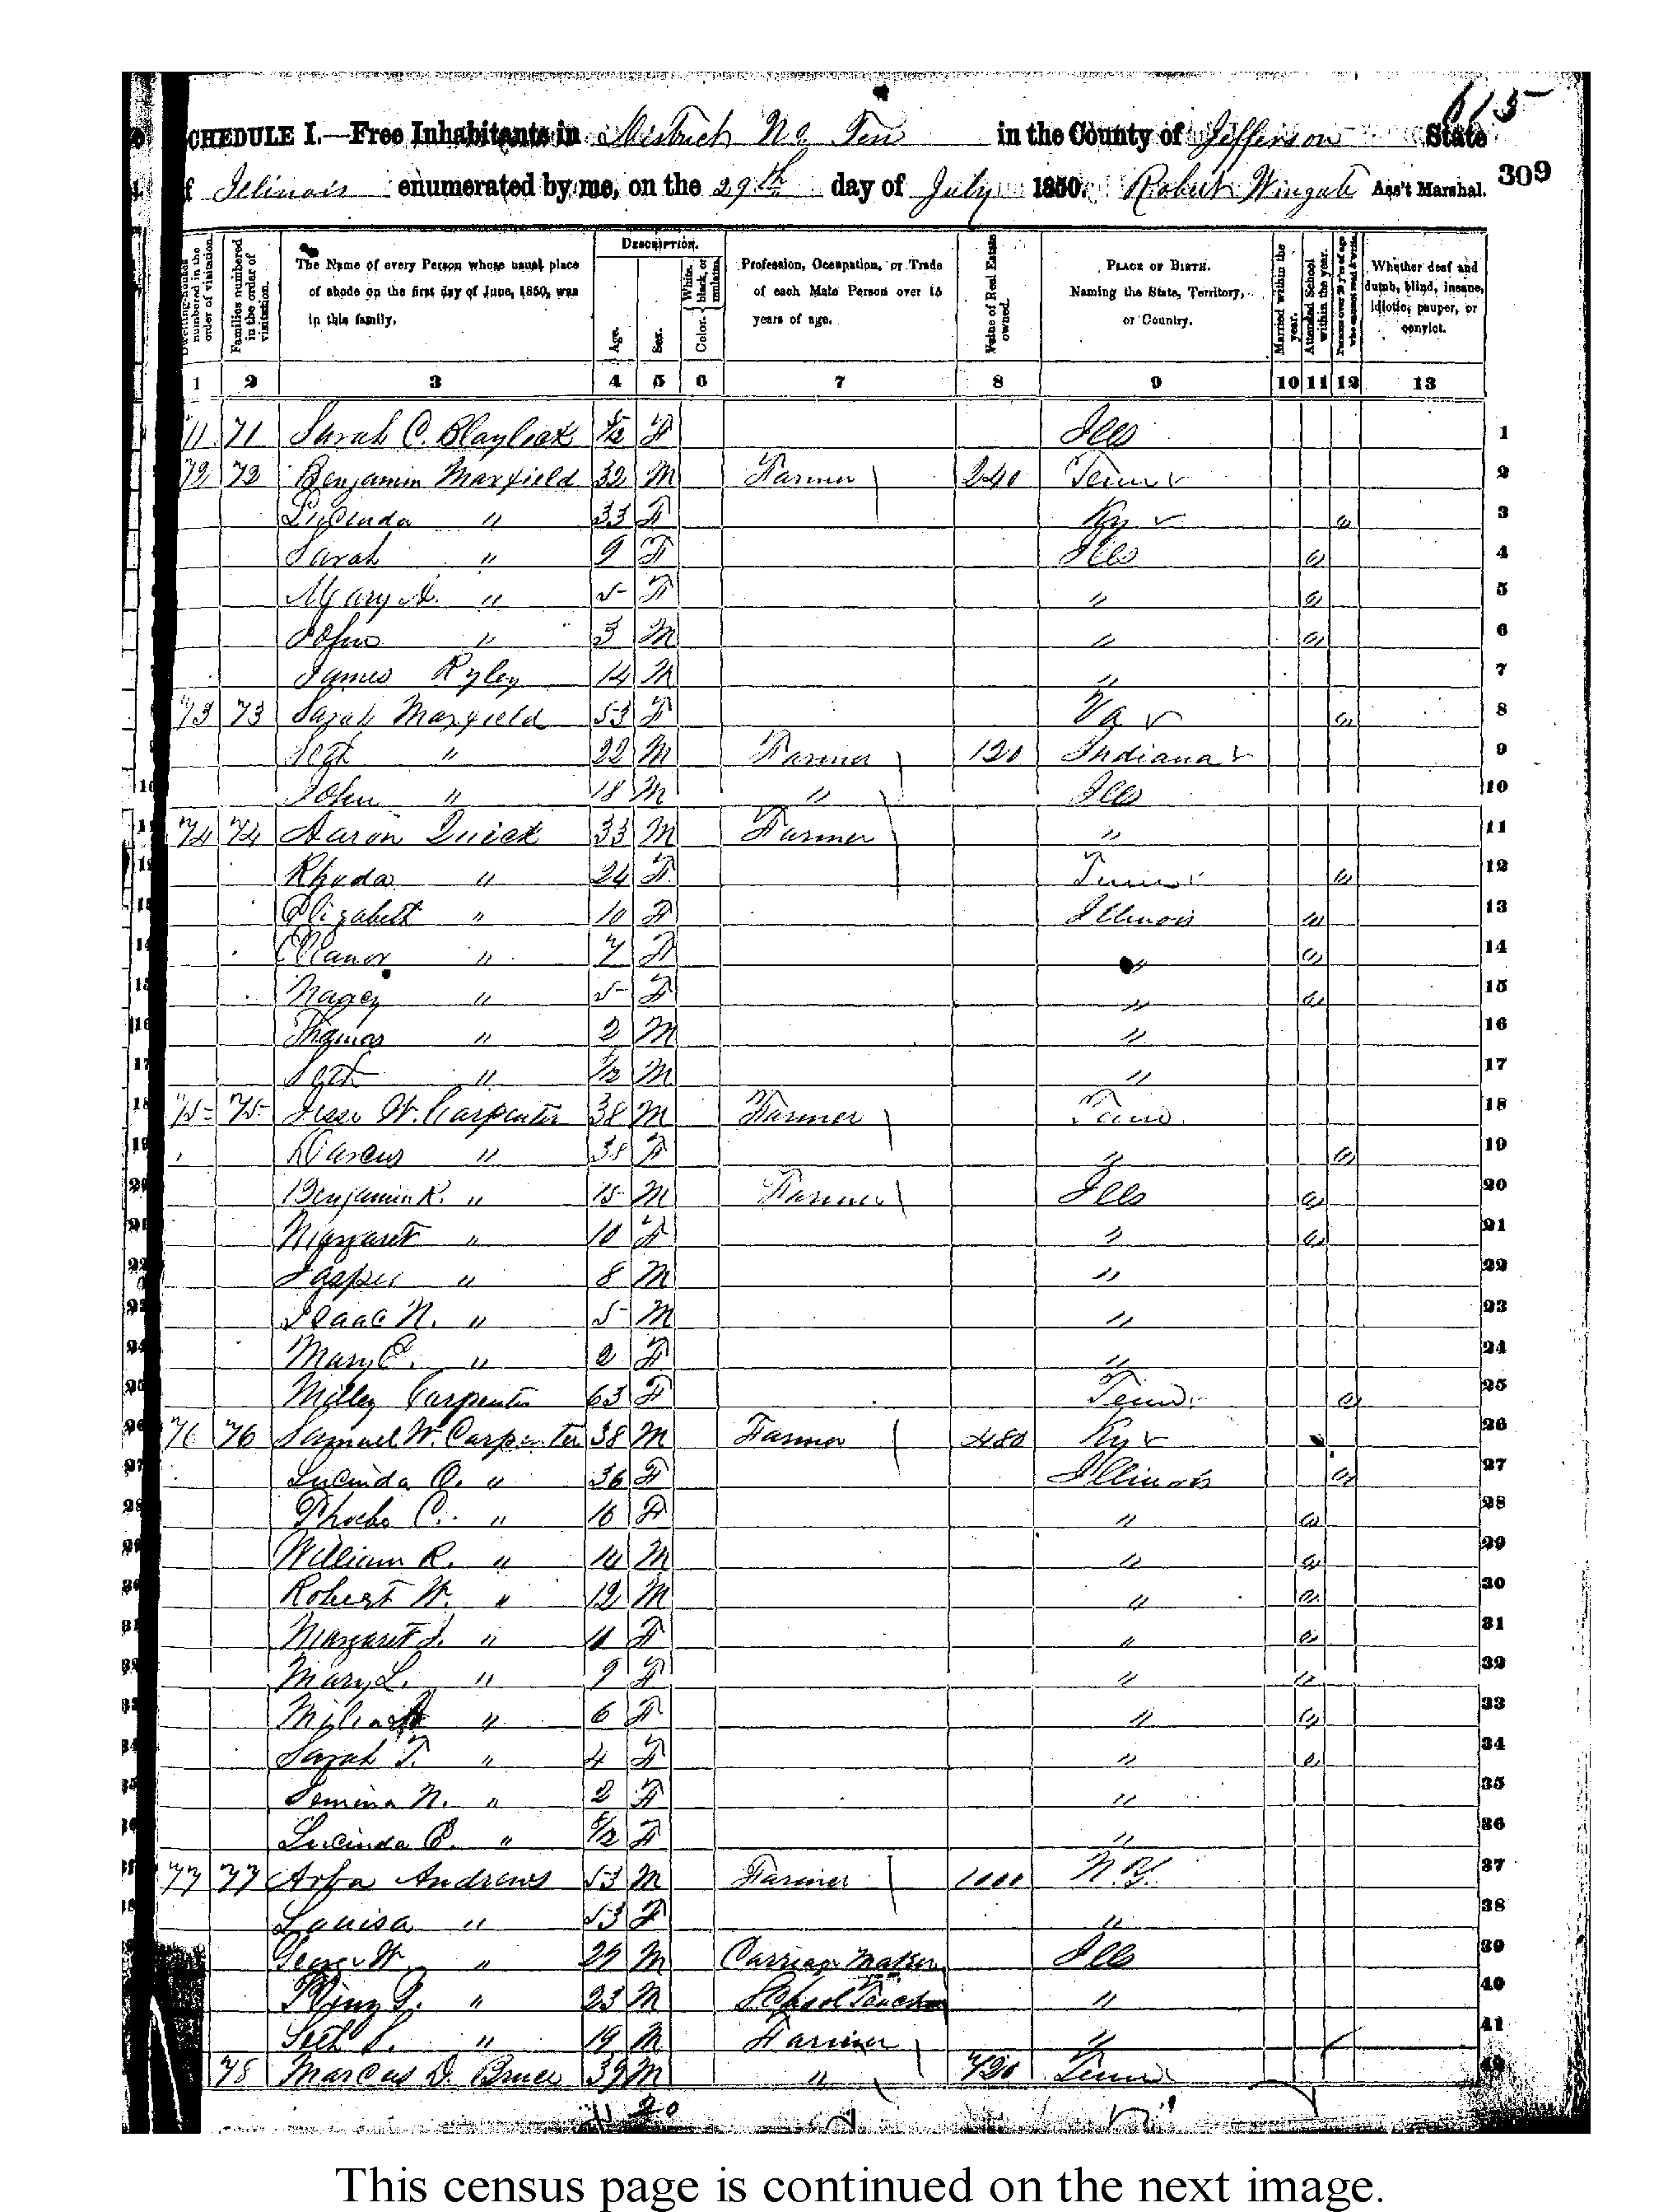 615
SCHEDULE I.—Free Inhabitants in District No Ten in the County of Jefferson State
of Illinois enumerated by me, on the 29th day of July 1850. Robert Wingate Ass't Marshal. 309
Dwelling-houses numbered in the order of visitation.
Families numbered in the order of visitation.
The Name of every Person whose usual place of abode on the first day of June, 1850, was in this family.
DESCRIPTION.
Age.
Sex.
Color. White, black, or mulatto.
Profession, Occupation, or Trade of each Male Person over 15 years of age.
Value of Real Estate owned.
PLACE OF BIRTH. Naming the State, Territory, or Country.
Married within the year.
Attended School within the year.
Persons over 20 y'rs of age who cannot read & write.
Whether deaf and dumb, blind, insane, idiotic, pauper, or convict.
1 2 3 4 5 6 7 8 9 10 11 12 13
71 Sarah C. Blaylock 5/12 F Ills 1
72 72 Benjamin Maxfield 32 M Farmer 240 Tenn 2
Lucinda " 33 F Ky 3
Sarah " 9 F Ills 4
Mary A. " 5 F " 5
John " 3 M " 6
James Ryley 14 M " 7
73 73 Sarah Maxfield 53 F Va 8
Seth " 22 M Farmer 120 Indiana 9
John " 18 M " Ills 10
74 74 Aaron Quick 33 M Farmer " 11
Rhoda " 24 F Tenn 12
Elizabeth " 10 F Illinois 13
Eleanor " 7 F " 14
Nancy " 5 F " 15
Thomas " 2 M " 16
Seth " /12 M " 17
75 75 Jesse W. Carpenter 38 M Farmer Tenn 18
Darcus " 38 F " 19
Benjamin R. " 15 M Farmer Ills 20
Margaret " 10 F " 21
Jasper " 8 M " 22
Isaac N. " 5 M " 23
Mary E. " 2 F " 24
Milley Carpenter 63 F Tenn 25
76 76 Samuel W. Carpenter 38 M Farmer 480 Ky 26
Lucinda O. " 36 F Illinois 27
Phoebe C. " 16 F " 28
William R. " 14 M " 29
Robert W. " 12 M " 30
Margaret J. " 11 F " 31
Mary L. " 9 F " 32
" 6 F " 33
Sarah T. " 4 F " 34
Jemima N. " 2 F " 35
Lucinda E. " /12 F " 36
77 77 Arba Andrews 53 M Farmer 1000 N.Y. 37
Louisa " 53 F " 38
George W. " 29 M Carriage Maker Ills 39
Pliny " 23 M School Teacher " 40
Seth S. " 19 M Farmer " 41
78 Marcus D. Bruce 39 M " 720 Tenn 42
20
This census page is continued on the next image.